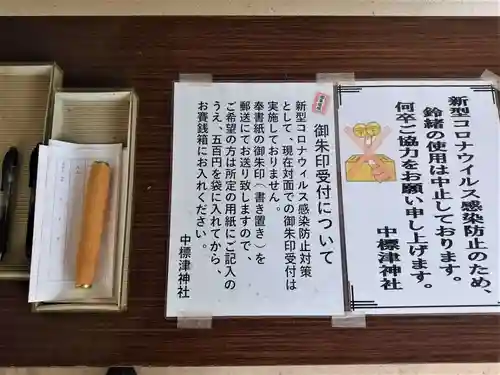 新型コロナウイルス感染防止のため、
鈴緒の使用は中止しております。
何卒ご協力をお願い申し上げます。
中標津神社
御朱印受付について
新型コロナウィルス感染防止対策
として、現在対面での御朱印受付は
実施しておりません。
奉書紙の御朱印（書き置き）を
郵送にてお送り致しますので、
ご希望の方は所定の用紙にご記入の
うえ、五百円を袋に入れてから、
お賽銭箱にお入れください。
中標津神社